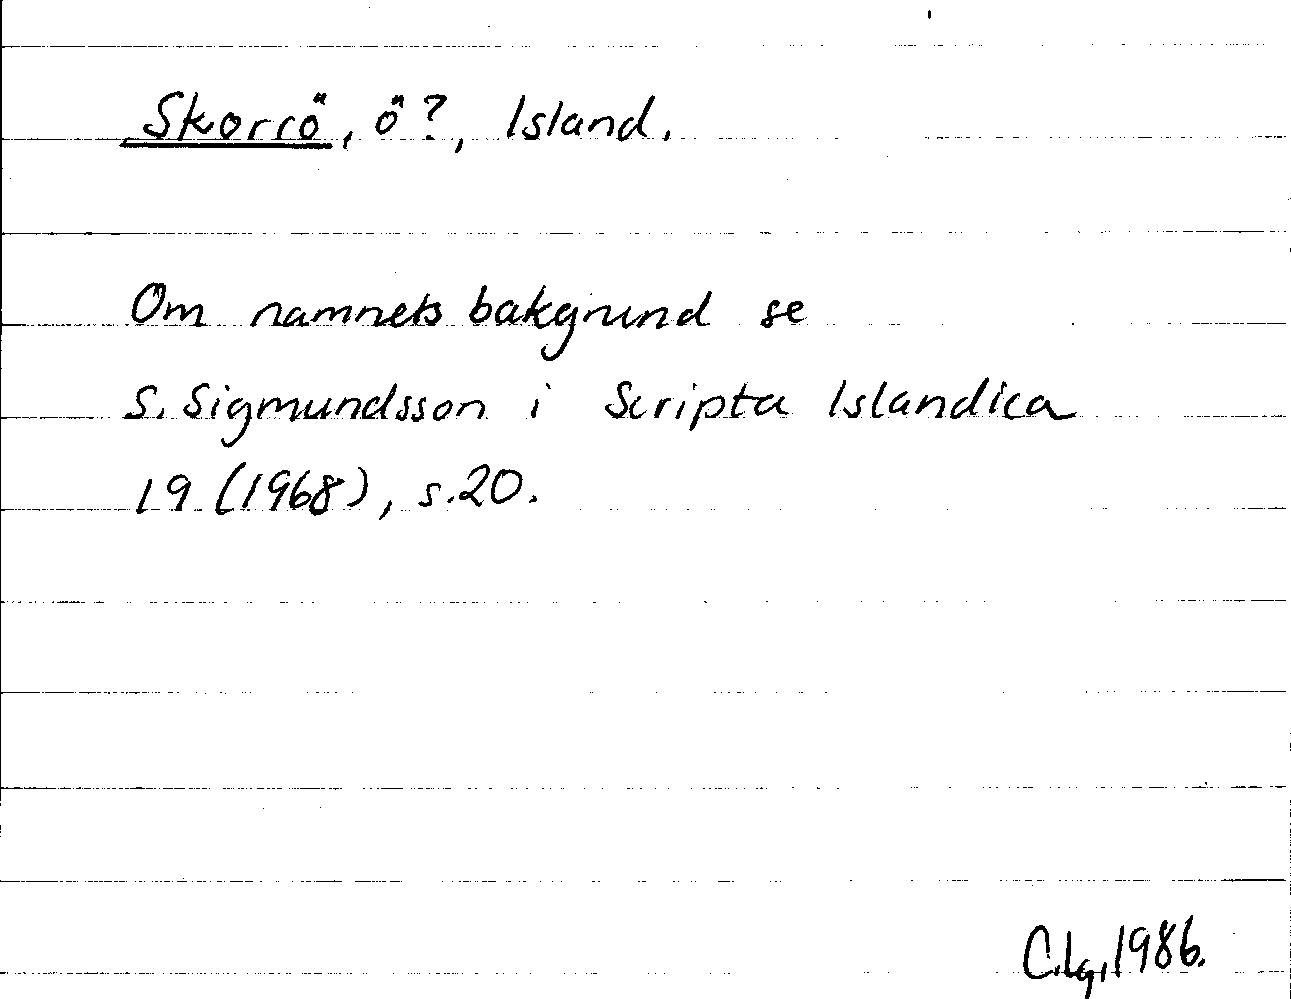 Skorrö, ö?, Island.
Om namnets bakgrund se
S. Sigmundsson i Scripta Islandica
19 (1968), s.20.
C.Lg, 1986.